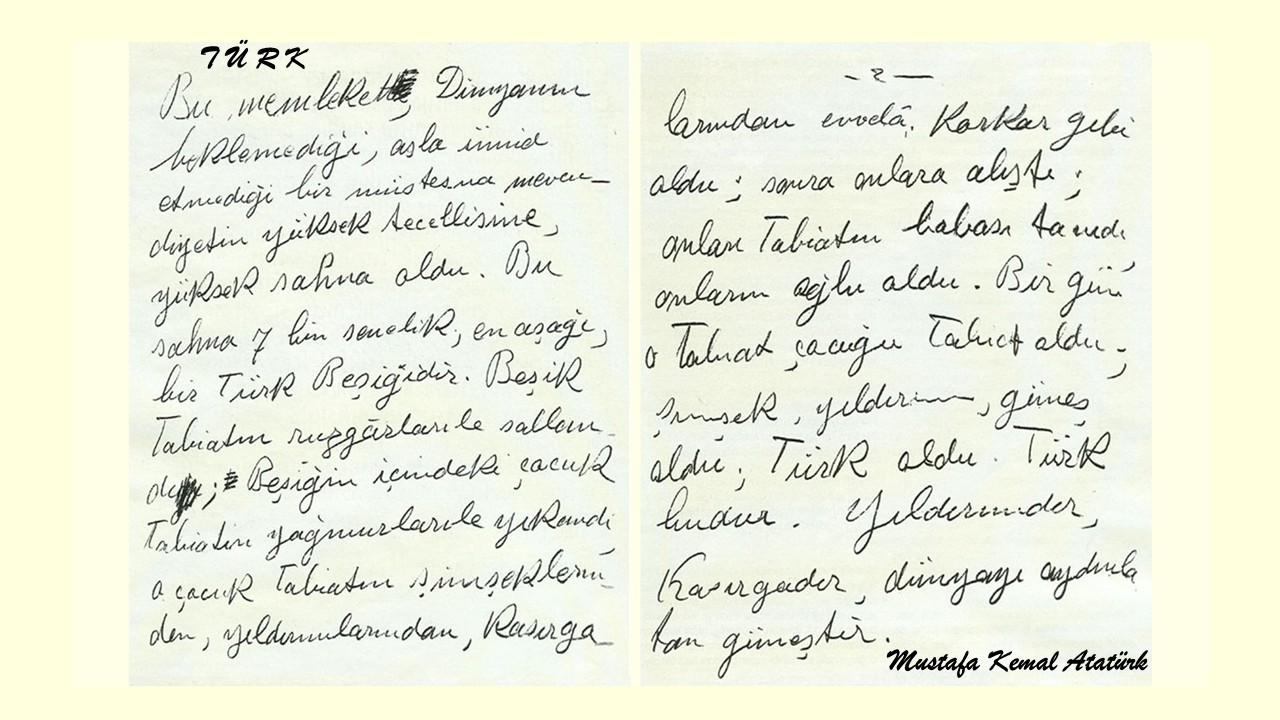 TÜRK
Bu memleket, Dünyanın
beklemediği, asla ümid
etmediği bir müstesna mevcu-
diyetin yüksek tecellisine,
yüksek sahna oldu. Bu
sahna 7 bin senelik, en aşağı,
bir Türk Beşiğidir. Beşik
Tabiatın rüzgârlarile sallan-
dı; Beşiğin içindeki çocuk
Tabiatın yağmurlarile yıkandı,
o çocuk Tabiatın şimşeklerin-
den, yıldırımlarından, Kasırga-
- 2 -
larından evvelâ, Korkar gibi
oldu; sonra onlara alıştı;
onları Tabiatın babası tanıdı,
onların oğlu oldu. Bir gün
o Tabiat çocuğu Tabiat oldu;
şimşek, yıldırım, güneş
oldu; Türk oldu. Türk
budur. Yıldırımdır,
Kasırgadır, dünyayı aydınla
tan güneştir.
Mustafa Kemal Atatürk